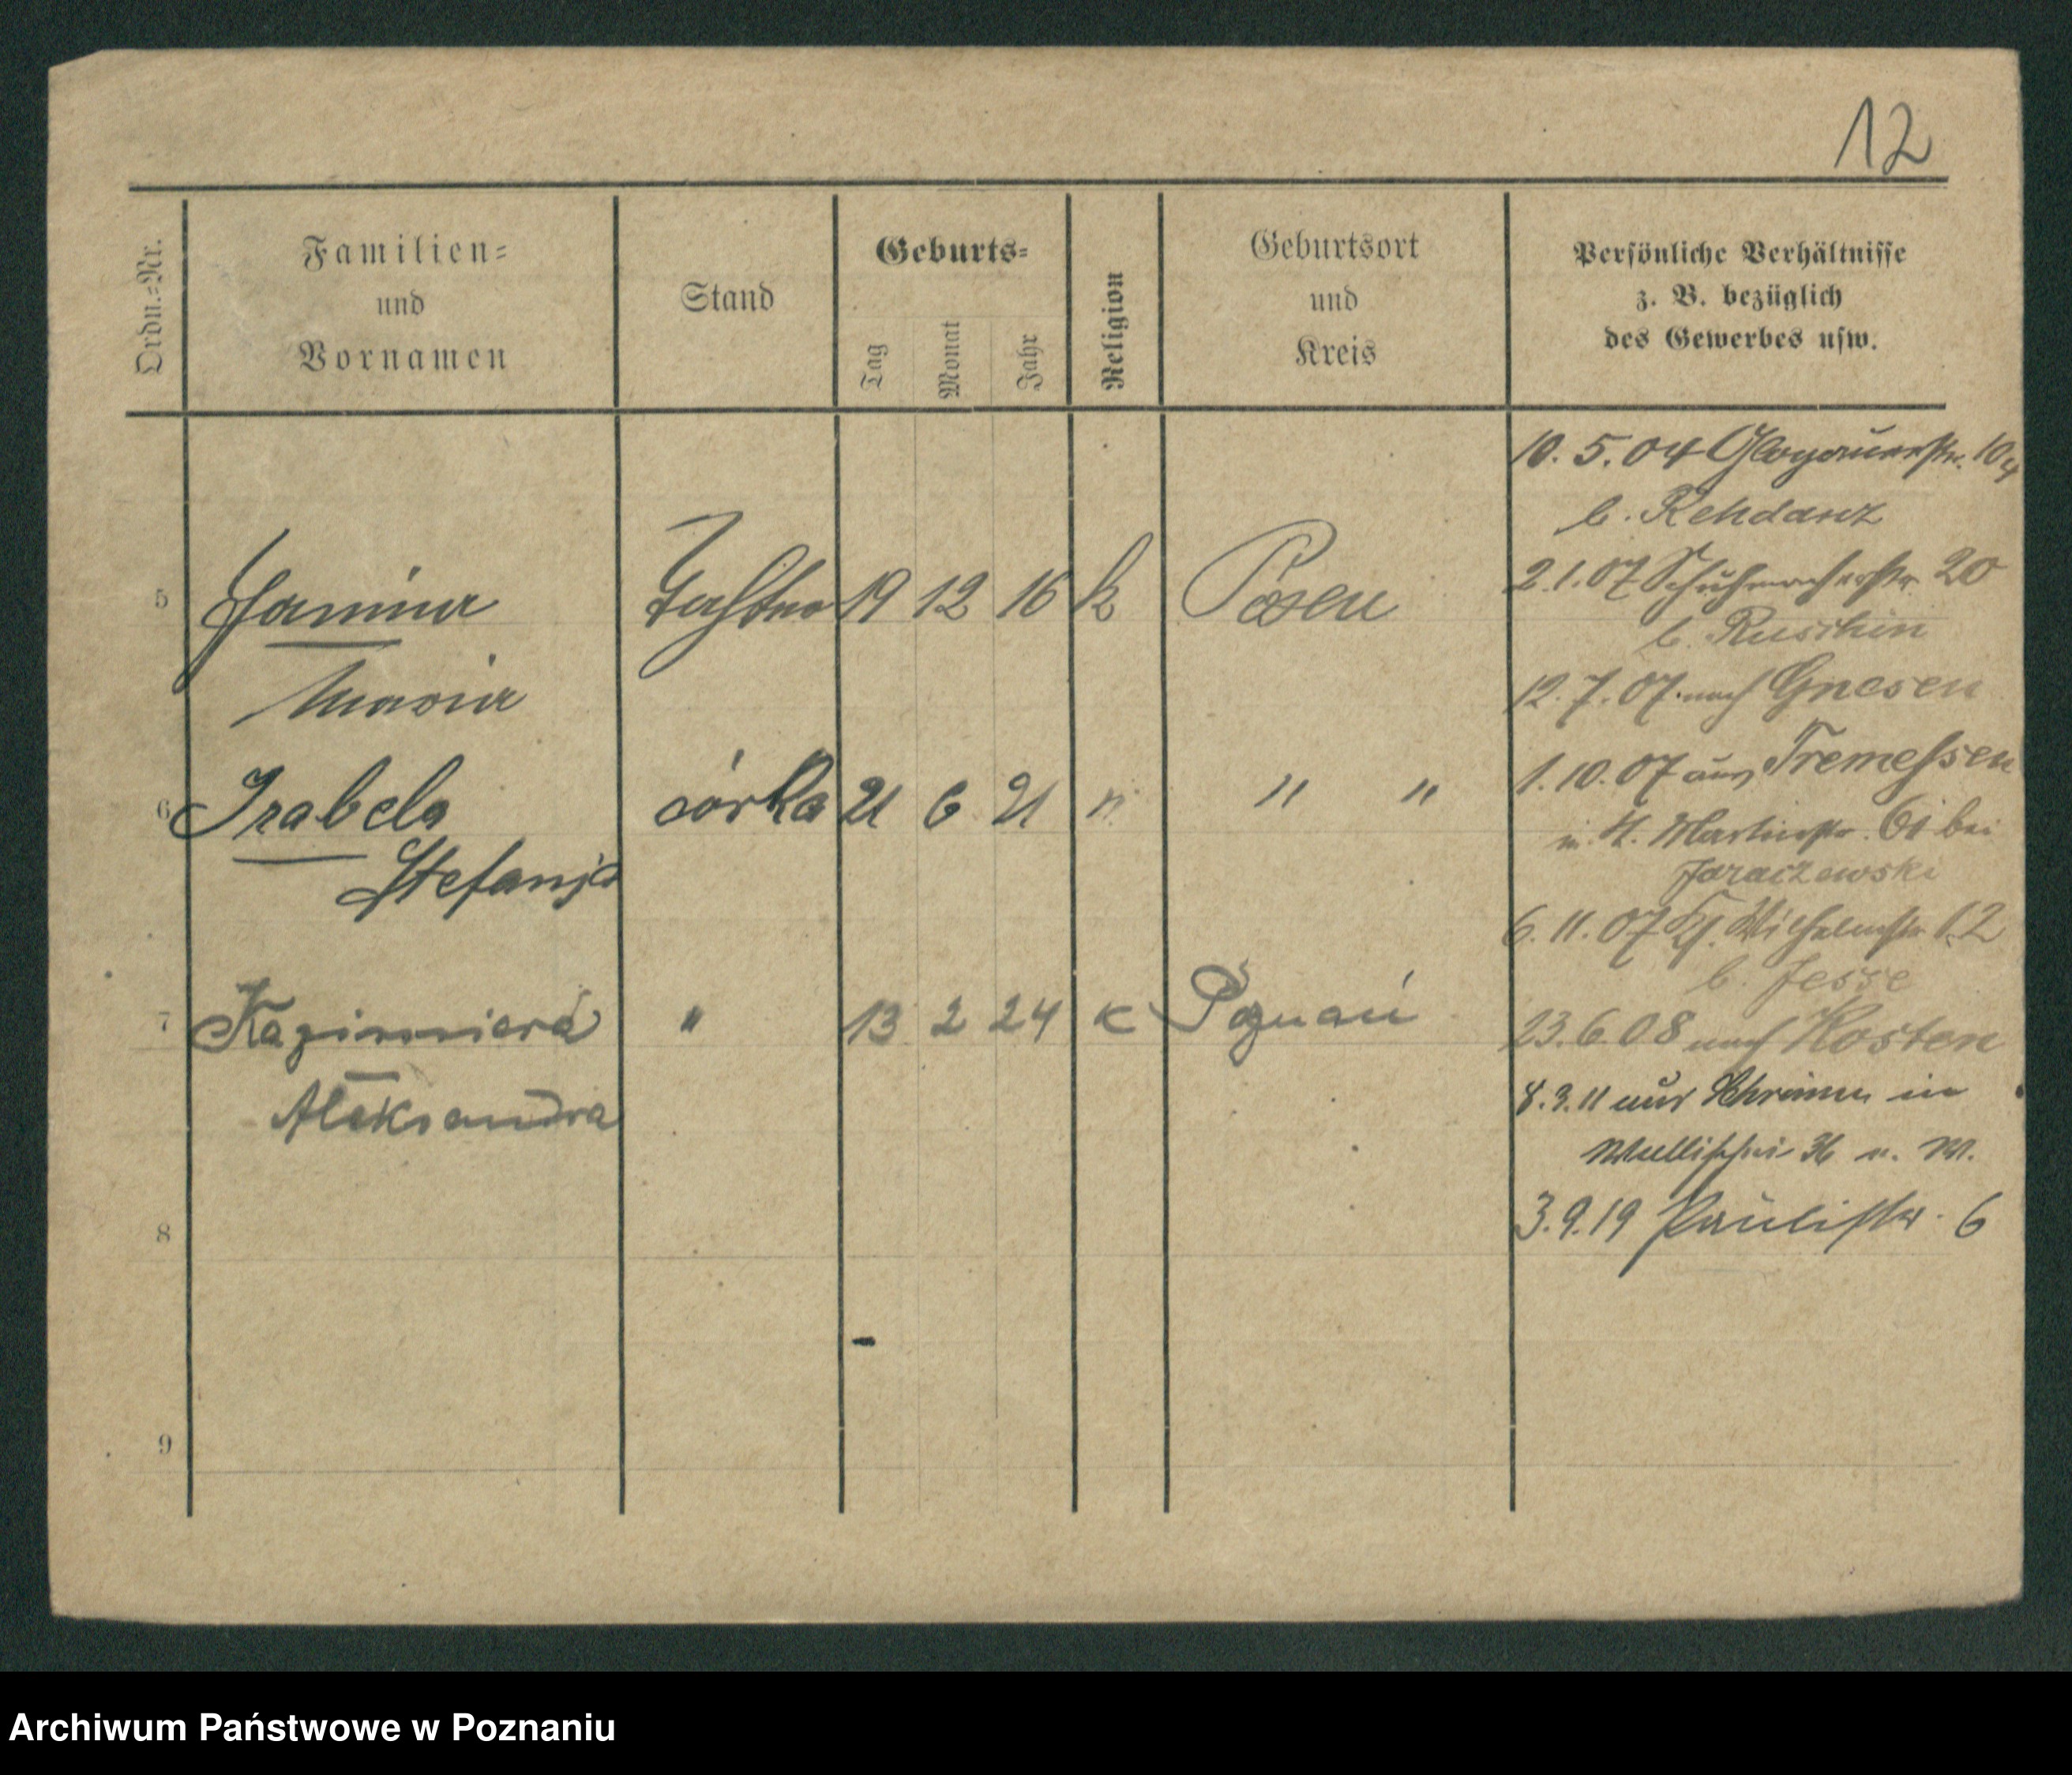 12
Ordn.=Nr.
Familien=
und
Vornamen
Stand
Geburts=
Tag
Monat
Jahr
Religion
Geburtsort
und
Kreis
Persönliche Verhältnisse
z. B. bezüglich
des Gewerbes usw.
10. 5. 04 Glogauerstr. 104
b. Rehdanz
5 Janina Tochter 19 12 16 k Posen
2.1.07 Schuhmacherstr. 20
b. Ruschin
Maria
12. 7. 07. nach Gnesen
1. 10. 07 aus Tremessen
6 Izabela córka 21 6 21 " " "
in St. Martinstr. 61 bei
Jaraczewski
Stefanja
6. 11. 07 Wilhelmstr. 12
b. Jesse
7 Kazimiera " 13 2 24 K Poznań
23. 6 08 nach Kosten
Aleksandra
8. 3. 11 aus Schrimm in
Wallischei u. W.
8
3. 9. 19 Paulistr. 6
9
Archiwum Państwowe w Poznaniu